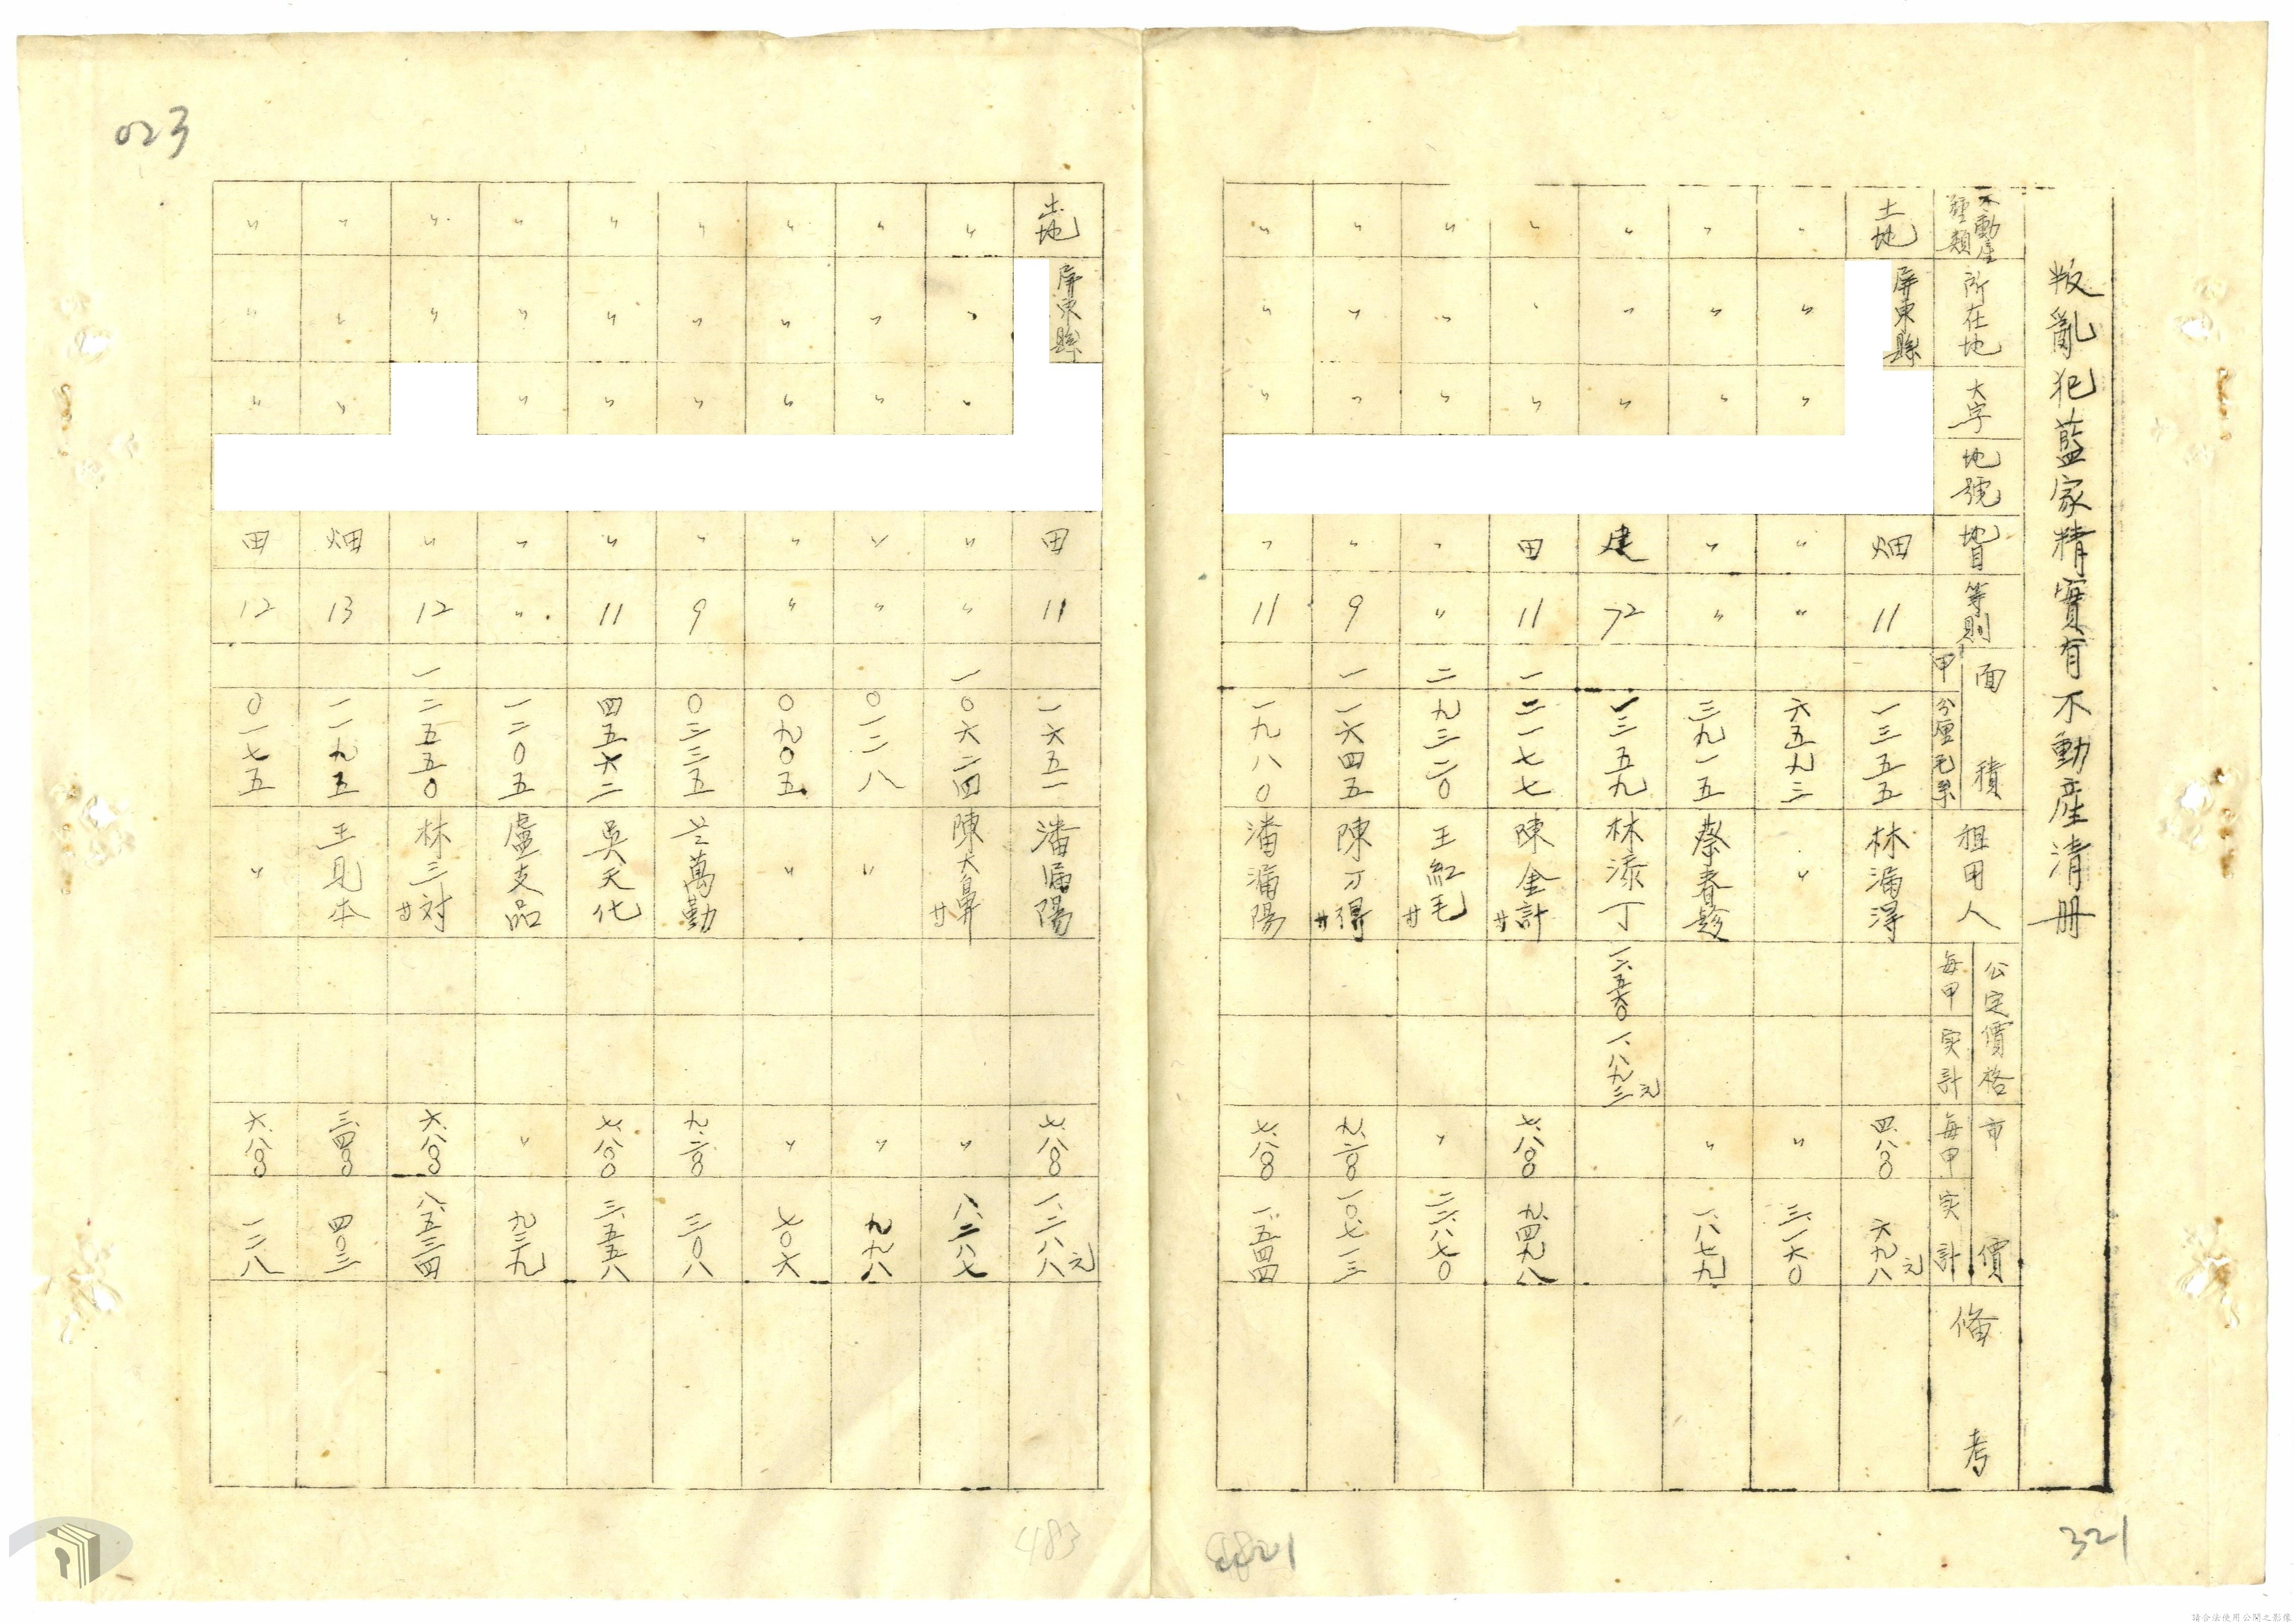 叛亂犯藍家精實有不動產清冊
不動產種類 所在地 大字 地號 地目 等則 面積 甲 分厘毛糸 租用人 公定價格 每甲 実計 市價 每甲 実計 備考
土地 屏東縣 畑 11 一三五五 林滿得 四.八〇〇 六九八元
〃 〃 〃 〃 〃 六五九三 〃 〃 三.一六〇
〃 〃 〃 〃 〃 三九一五 蔡春 〃 一.八七九
〃 〃 〃 建 72 一三五九 林添丁 一.八九三元
〃 〃 〃 田 11 一 二一七七 陳金計 廿 七.八〇〇 九.四九八
〃 〃 〃 〃 〃 二 九三二〇 王紅毛 廿 〃 二二.八七〇
〃 〃 〃 〃 9 一 一六四五 陳刀得 廿 九.二〇〇 一〇.七一三
〃 〃 〃 〃 11 一九八〇 潘滿陽 七.八〇〇 一.五四四
土地 屏東縣 田 11 一六五一 潘滿陽 七.八〇〇 一.二八八元
〃 〃 〃 〃 〃 一 〇六二四 陳大鼻 廿 〃 八.二八七
〃 〃 〃 〃 〃 〇一二八 〃 〃 九九八
〃 〃 〃 〃 〃 〇九〇五 〃 〃 七〇六
〃 〃 〃 〃 9 〇三三五 萬勤 九.二〇〇 三〇八
〃 〃 〃 〃 11 四五六二 吳天化 七.八〇〇 三.五五八
〃 〃 〃 〃 〃 一二〇五 盧支品 〃 九三九
〃 〃 〃 12 一 二五五〇 林三対 廿 六.八〇〇 八.五三四
〃 〃 〃 畑 13 一一九五 王見本 三.四〇〇 四〇三
〃 〃 〃 田 12 〇一七五 〃 六.八〇〇 一二八
023
321
483
請合法使用公開之影像